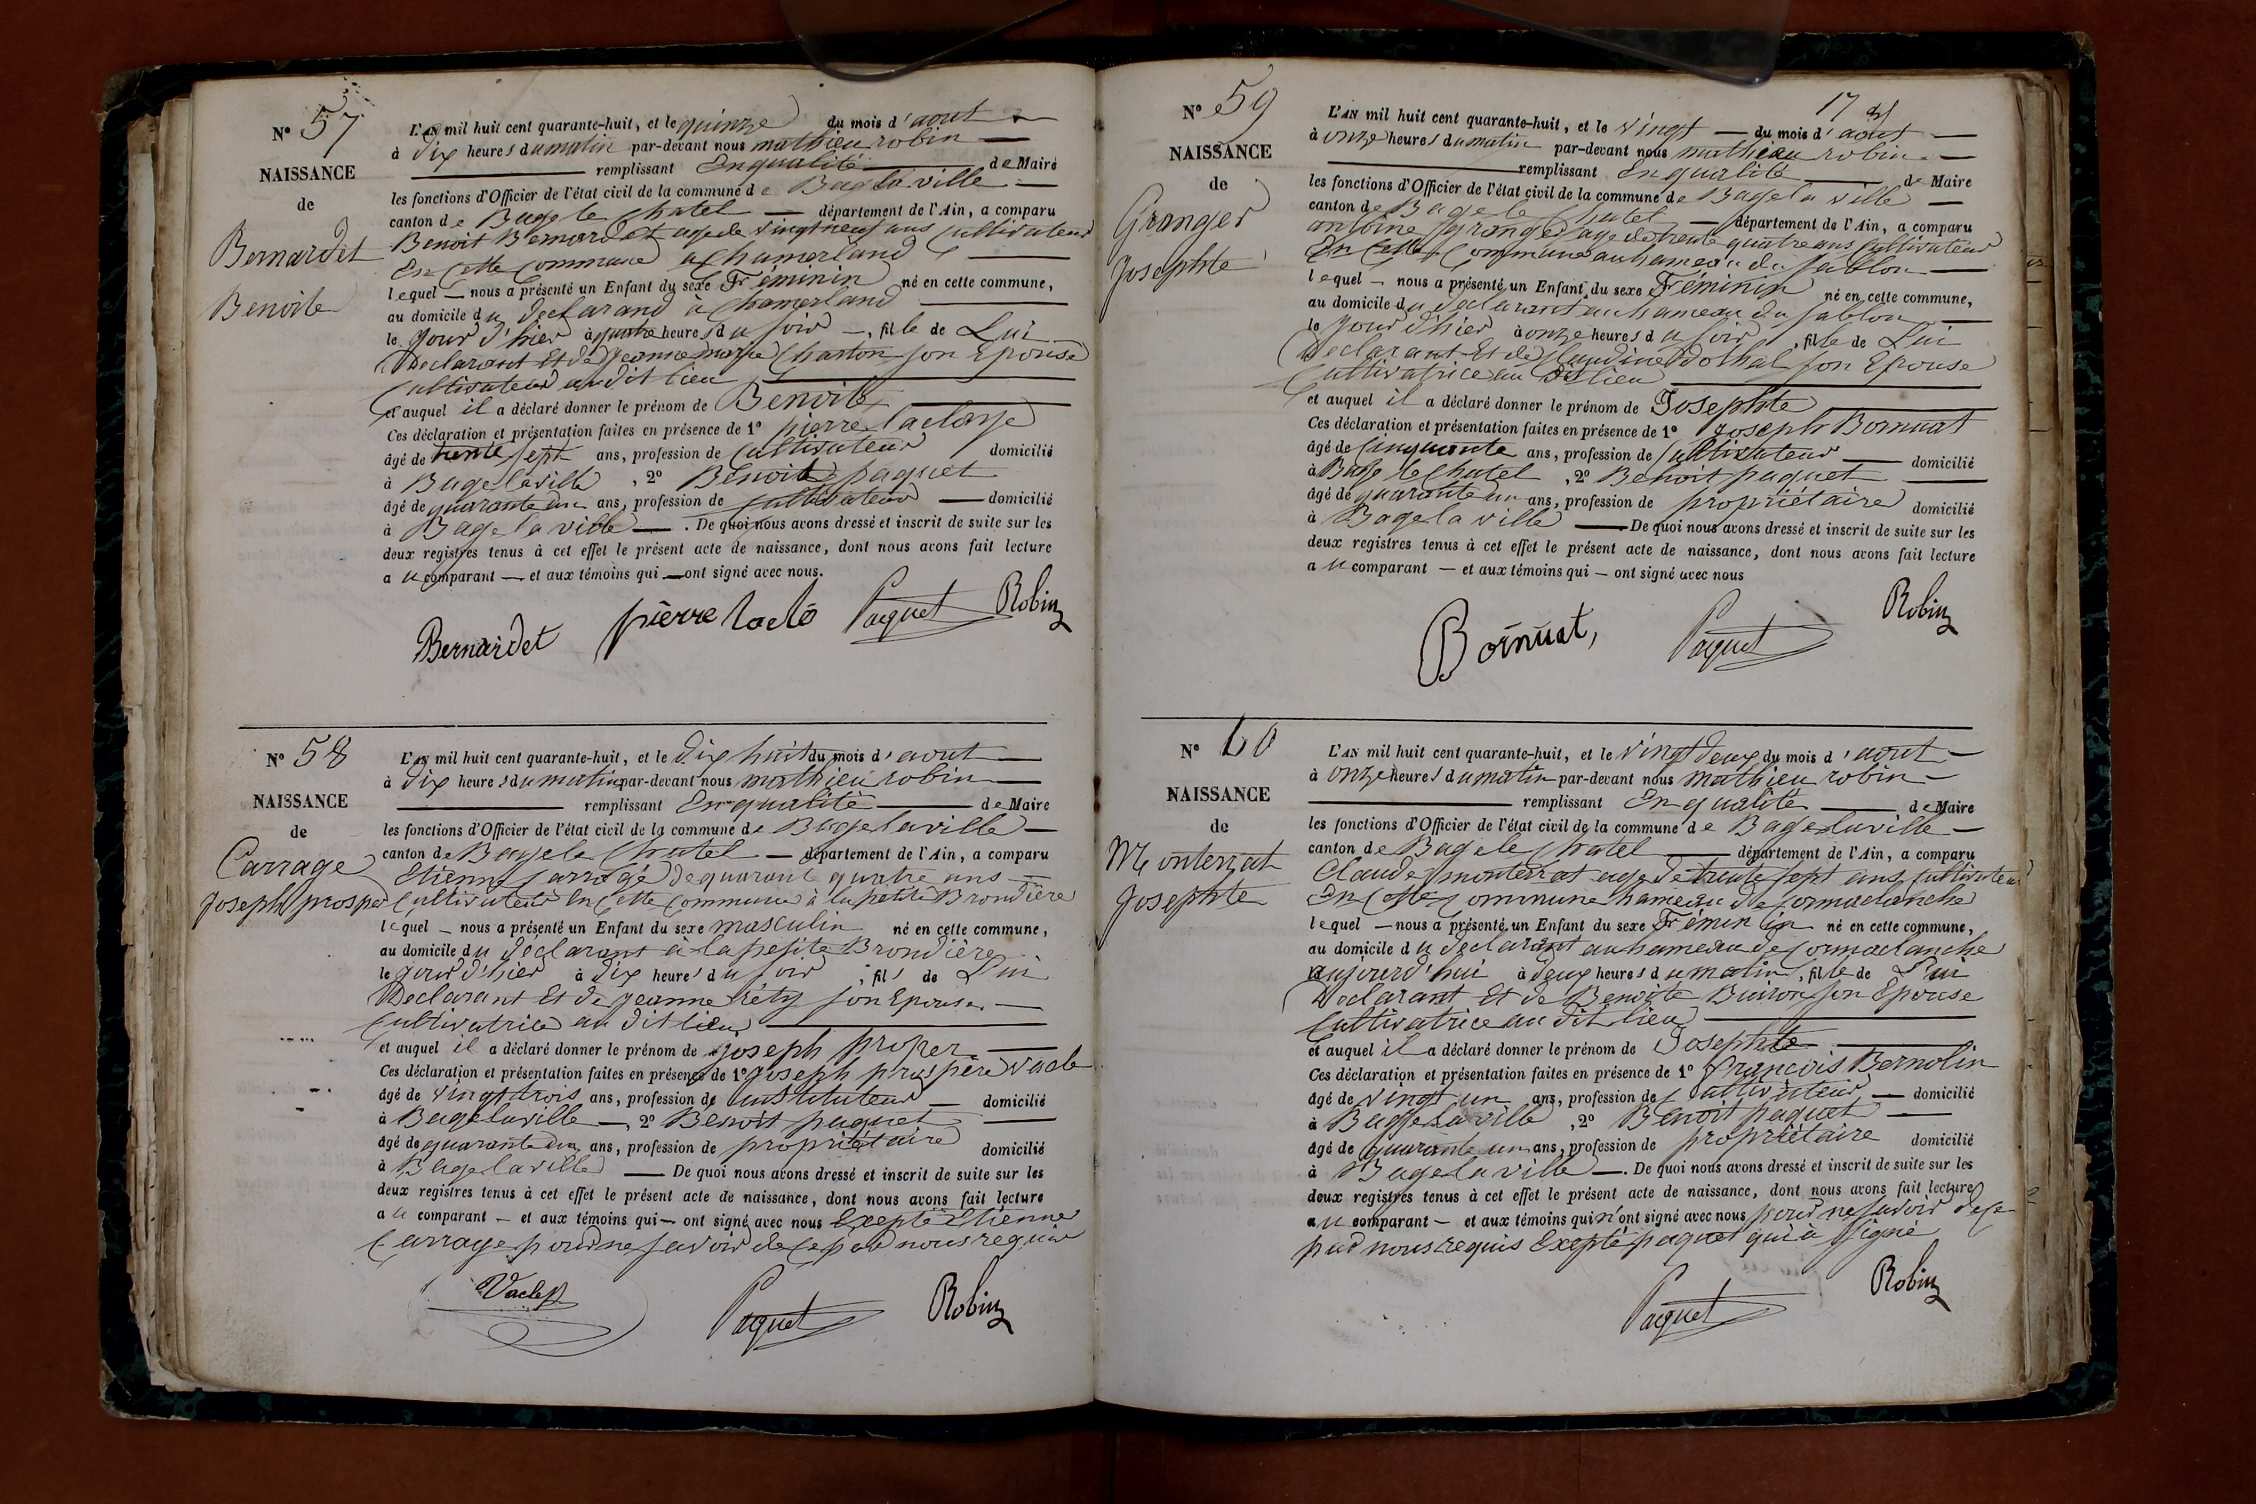 N° 57
NAISSANCE
de
Bernardet
Benoite
L'AN mil huit cent quarante-huit, et le quinze du mois d'aout
à Dix heures du matin par-devant nous mathieu robin
remplissant En qualité de Maire
les fonctions d'Officier de l'état civil de la commune de Bagé la ville
canton de Bage le Chatel département de l'Ain, a comparu
Benoit Bernardet age de vingt neuf ans Cultivateur
En Cette Commune a Chamerland
lequel nous a présenté un Enfant du sexe Féminin né en cette commune,
au domicile du Declarand à Chamerland
le Jour d'hier à quatre heures du soir, fille de Lui
Declarant Et de Jeanne marie Charton son Epouse
Cultivateur au dit lieu
et auquel il a déclaré donner le prénom de Benoite
Ces déclaration et présentation faites en présence de 1° pierre
âgé de trente sept ans, profession de Cultivateur domicilié
à Bagelaville, 2° Benoit paquet
âgé de quarante un ans, profession de Cultivateur domicilié
à Bage la ville. De quoi nous avons dressé et inscrit de suite sur les
deux registres tenus à cet effet le présent acte de naissance, dont nous avons fait lecture
au comparant et aux témoins qui ont signé avec nous.
Bernardet pierre Paquet Robin
N° 58
NAISSANCE
de
Carrage
Joseph prosper
L'AN mil huit cent quarante-huit, et le dix huit du mois d'aout
à Dix heures du matin par-devant nous mathieu robin
remplissant En qualité de Maire
les fonctions d'Officier de l'état civil de la commune de Bagelaville
canton de Bage le Chatel département de l'Ain, a comparu
Etienne Carrage de quarante quatre ans
Cultivateur En Cette Commune à la petite Brondière
lequel nous a présenté un Enfant du sexe masculin né en cette commune,
au domicile du déclarant à la petite Brondière
le jour d'hier à dix heures du soir, fils de Lui
Declarant Et de Jeanne réty son Epouse
Cultivatrice au dit lieu
et auquel il a déclaré donner le prénom de joseph proper
Ces déclaration et présentation faites en présence de 1° Joseph prospère Vacle
âgé de vingt trois ans, profession de instituteur domicilié
à Bagelaville, 2° Benoit paquet
âgé de quarante un ans, profession de propriétaire domicilié
à Bagelaville De quoi nous avons dressé et inscrit de suite sur les
deux registres tenus à cet effet le présent acte de naissance, dont nous avons fait lecture
au comparant et aux témoins qui ont signé avec nous Excepté Etienne
Carrage pour ne savoir de ce par nous requis
Paquet Robin
17
N° 59
NAISSANCE
de
Granger
Josephte
L'AN mil huit cent quarante-huit, et le vingt du mois d'aout
à onze heures du matin par-devant nous mathieu robin
remplissant En qualité de Maire
les fonctions d'Officier de l'état civil de la commune de Bagela ville
canton de Bage le Chatel département de l'Ain, a comparu
antoine Granger age de trente quatre ans Cultivateur
En Cette Commune au hameau du Sablon
lequel nous a présenté un Enfant du sexe Féminin né en cette commune,
au domicile du declarant au hameau du Sablon
le Jour d'hier à onze heures du soir, fille de Lui
Declarant Et de Claudine Dothal son Epouse
Cultivatrice au dit lieu
et auquel il a déclaré donner le prénom de Josephte
Ces déclaration et présentation faites en présence de 1° Joseph Bornuat
âgé de Cinquante ans, profession de Cultivateur domicilié
à Bage le Chatel, 2° Benoit paquet
âgé de quarante un ans, profession de propriétaire domicilié
à Bagela ville De quoi nous avons dressé et inscrit de suite sur les
deux registres tenus à cet effet le présent acte de naissance, dont nous avons fait lecture
au comparant et aux témoins qui ont signé avec nous
Bornuat, Paquet Robin
N° 60
NAISSANCE
de
Monterrat
Josephte
L'AN mil huit cent quarante-huit, et le vingt deux du mois d'aout
à onze heures du matin par-devant nous mathieu robin
remplissant En qualité de Maire
les fonctions d'Officier de l'état civil de la commune de Bagelaville
canton de Bage le Chatel département de l'Ain, a comparu
Claude monterrat age de trente sept ans Cultivateur
En Cette Commune hameau de Cormaclanche
lequel nous a présenté un Enfant du sexe Féminin né en cette commune,
au domicile du declarant au hameau de Cormaclanche
aujourd'hui à deux heures du matin, fille de Lui
Declarant Et de Benoite Buiron son Epouse
Cultivatrice au dit lieu
et auquel il a déclaré donner le prénom de Josephte
Ces déclaration et présentation faites en présence de 1° François Bernolin
âgé de vingt un ans, profession de Cultivateur domicilié
à Bage la ville, 2° Benoit paquet
âgé de quarante un ans, profession de propriétaire domicilié
à Bagela ville. De quoi nous avons dressé et inscrit de suite sur les
deux registres tenus à cet effet le présent acte de naissance, dont nous avons fait lecture
au comparant et aux témoins qui n'ont signé avec nous pour ne savoir de ce
par nous requis Excepté paquet qui à signé
Paquet Robin